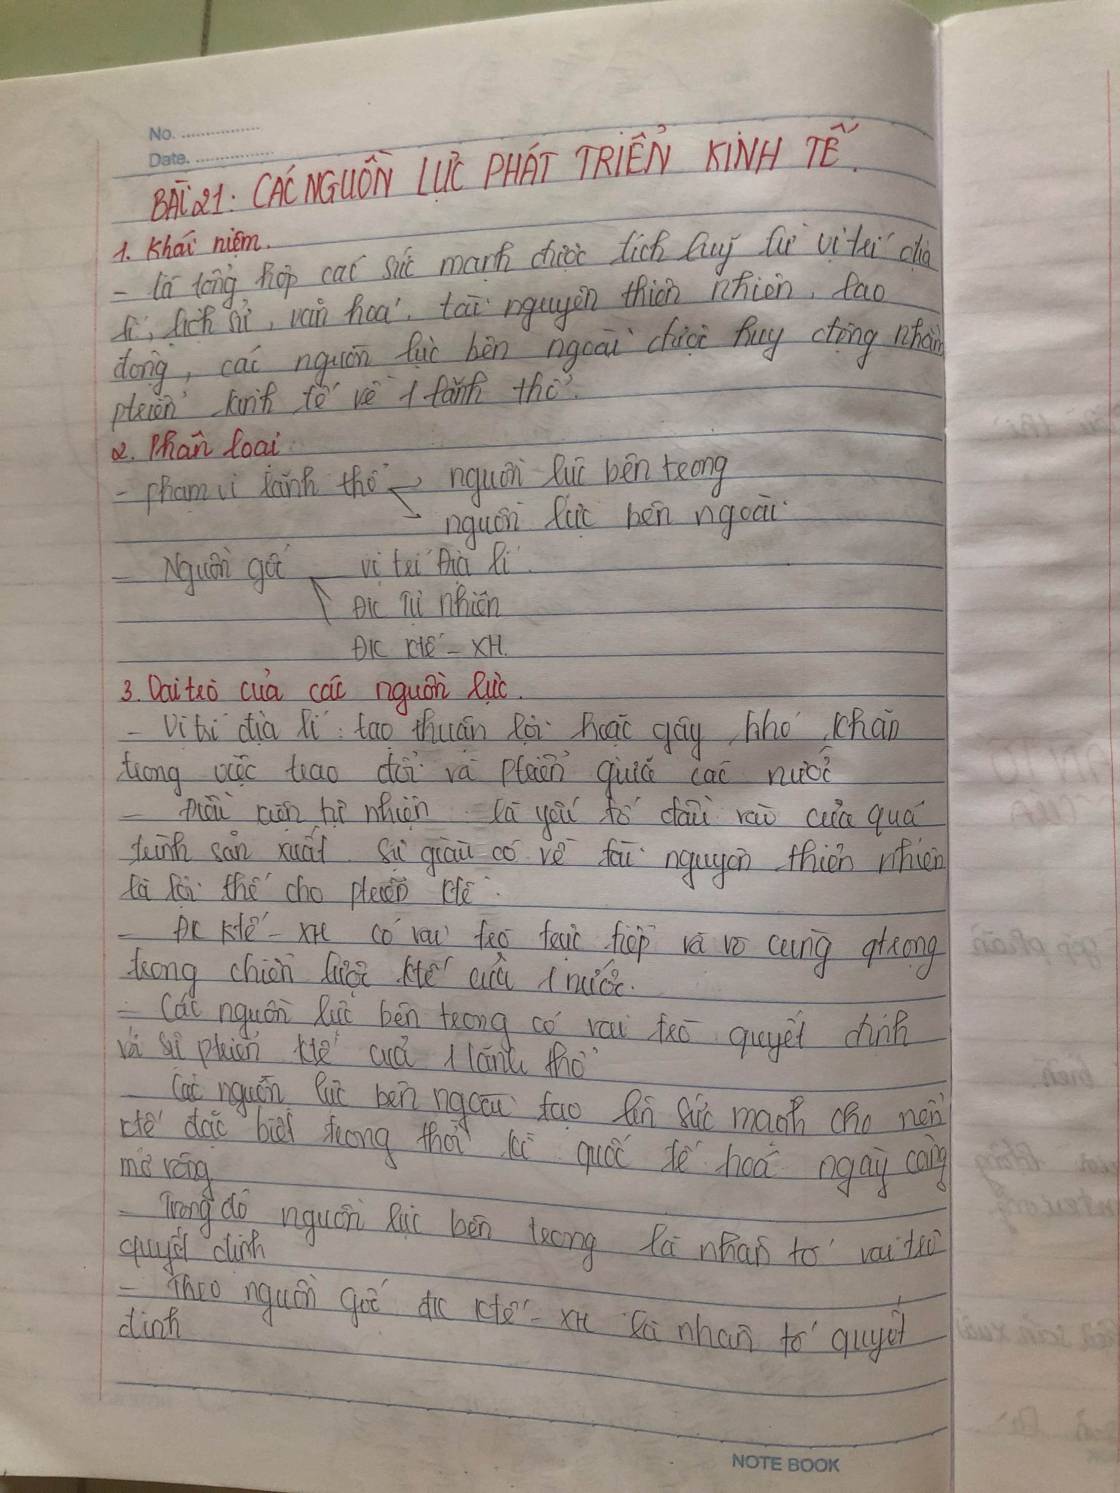 No.
Date.
BÀI 21: CÁC NGUỒN LỰC PHÁT TRIỂN KINH TẾ.
1. Khái niệm.
- là tổng hợp các sức mạnh được tích luỹ từ vị trí địa
lí, lịch sử, văn hoá, tài nguyên thiên nhiên, lao
động, các nguồn lực bên ngoài được huy động nhằm
ptriển kinh tế về 1 lãnh thổ.
2. Phân loại
- phạm vi lãnh thổ → nguồn lực bên trong
nguồn lực bên ngoài
- Nguồn gốc vị trí địa lí.
ĐK Tự nhiên
ĐK Ktế - XH.
3. Vai trò của các nguồn lực.
- Vị trí địa lí: tạo thuận lợi hoặc gây khó khăn
trong việc trao đổi và giữa các nước
- Điều kiện tự nhiên là yếu tố đầu vào của quá
trình sản xuất. Sự giàu có về tài nguyên thiên nhiên
là lợi thế cho ptriển ktế.
- ĐK Ktế - XH có vai trò trực tiếp và vô cùng qtrọng
trong chiến lược ktế của 1 nước.
- Các nguồn lực bên trong có vai trò quyết định
và sự ptriển ktế của 1 lãnh thổ
- Các nguồn lực bên ngoài tạo lên sức mạnh cho nền
ktế đặc biệt trong thời kì quốc tế hoá ngày càng
mở rộng
- Trong đó nguồn lực bên trong là nhân tố vai trò
quyết định
- Theo nguồn gốc đk ktế - XH là nhân tố quyết
định
NOTE BOOK